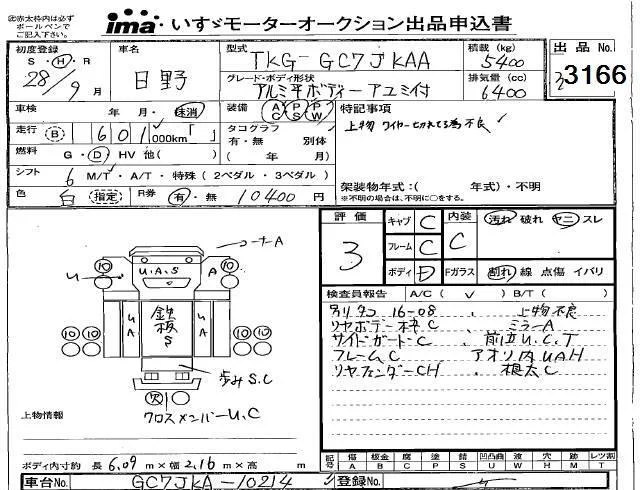 ㊟赤太枠内は必ず
ボールペンで
ご記入下さい。
ima いすゞモーターオークション出品申込書
初度登録
S・H・R
28/9月
車名
日野
型式
TKG-GC7JKAA
積載 (kg)
5400
出品 No.
3166
グレード・ボディ形状
アルミ平ボディー アユミ付
排気量 (cc)
6400
車検 年・月・抹消
装備 AC PS PW
特記事項
上物 ワイヤー切れてる為不良
走行 B 601,000km「 」
タコグラフ
有・無 別体
( 年 月)
燃料 G・D・HV 他( )
シフト 6 M/T・A/T・特殊(2ペダル・3ペダル)
架装物年式:( 年式)・不明
※不明の場合は、不明に○をする。
色 白 指定 R券 有・無 10400円
評価
3
キャブ C
フレーム C
ボディ D
内装
C
汚れ 破れ ヤニ スレ
Fガラス 割れ 線 点傷 イバリ
検査員報告 A/C( ✓ ) B/T( )
別タコ 16-08 、上物不良
リヤボデー枠C 、ミラーA
サイドガードC 、前立U.C.T
フレームC アオリ内UAH
リヤフェンダーCH 、根太C
ーナA
10 U.A.S 10
U A
UA 鉄板S UA
10 10 10 10
歩みS.C
欠
クロスメンバーU.C
上物情報
ボディ内寸約 長 6.09 m×幅 2.16 m×高 m
記号 傷 板金 腐 塗 凹凸曲 波 穴 跡 レツ割
A B C S U W H M T
車台No. GC7JKA-10214
登録No.